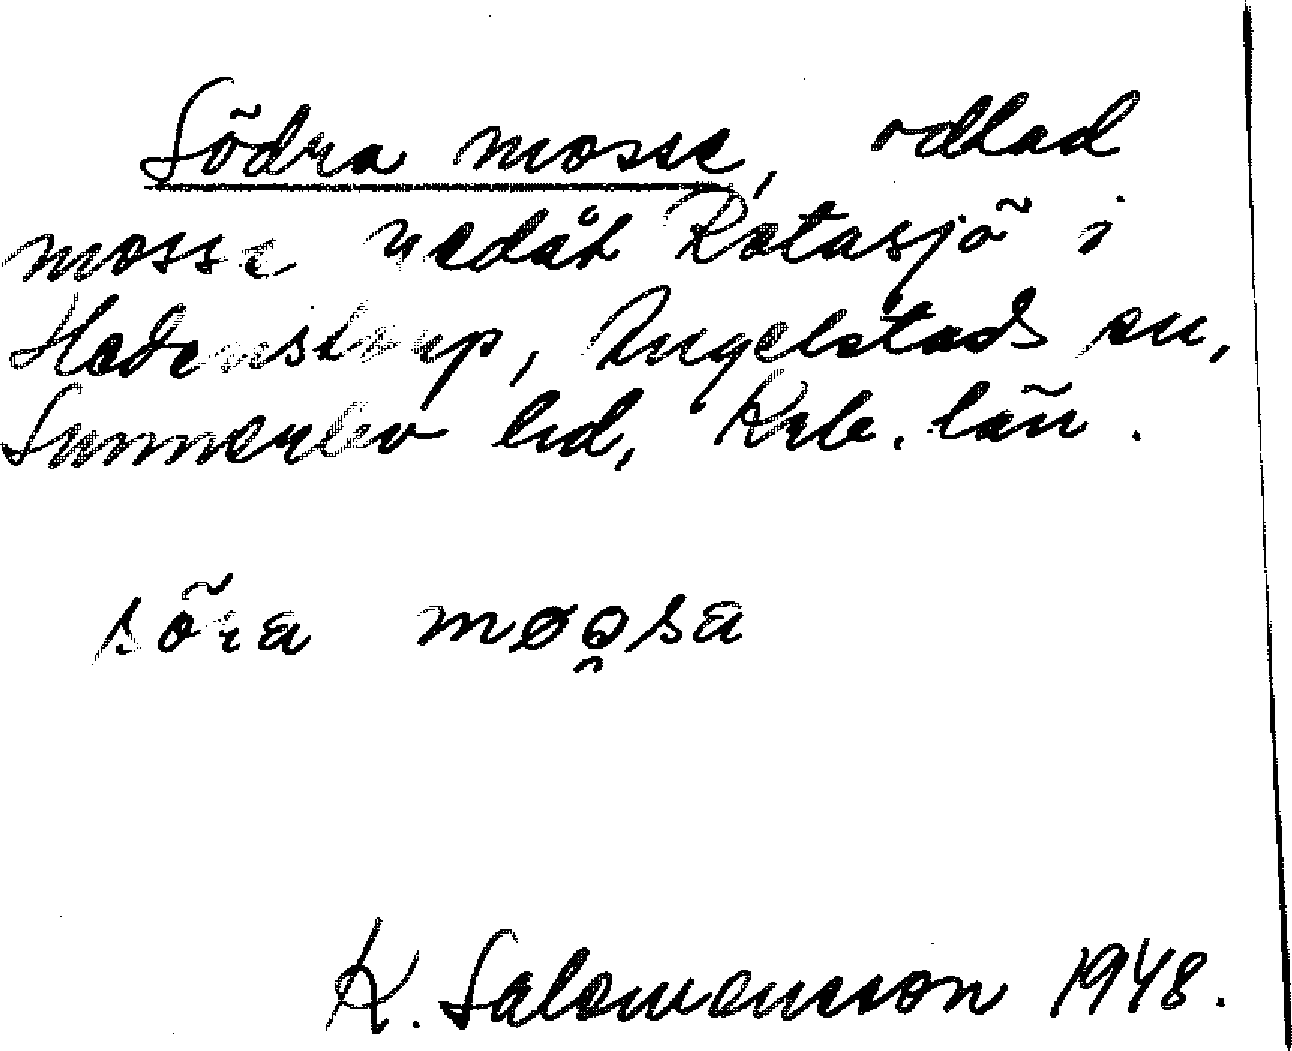 Södra mosse, odlad
mosse nedåt Rotasjö i
Hedenstorp, Ingelstads sn,
Sunnerbo hd, Krb. län.
söra møo̯sa
K. Salomonsson 1948.